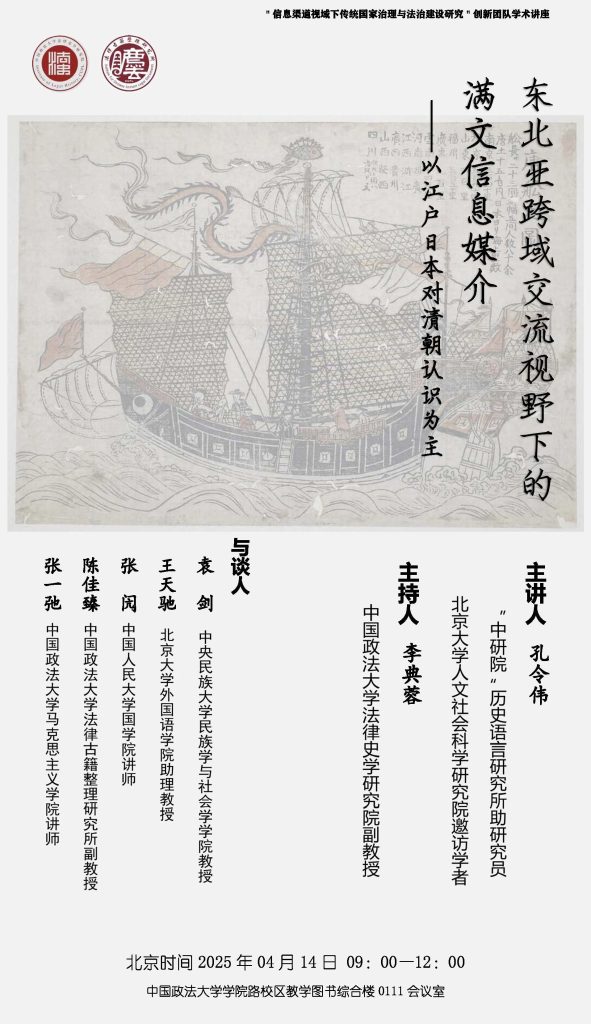 "信息渠道视域下传统国家治理与法治建设研究"创新团队学术讲座
东北亚跨域交流视野下的
满文信息媒介
——以江户日本对清朝认识为主
主讲人 孔令伟
"中研院"历史语言研究所助研究员
北京大学人文社会科学研究院邀访学者
主持人 李典蓉
中国政法大学法律史学研究院副教授
与谈人
袁 剑 中央民族大学民族学与社会学学院教授
王天驰 北京大学外国语学院助理教授
张 闶 中国人民大学国学院讲师
陈佳臻 中国政法大学法律古籍整理研究所副教授
张一弛 中国政法大学马克思主义学院讲师
北京时间 2025 年 04 月 14 日 09：00—12：00
中国政法大学学院路校区教学图书综合楼 0111 会议室